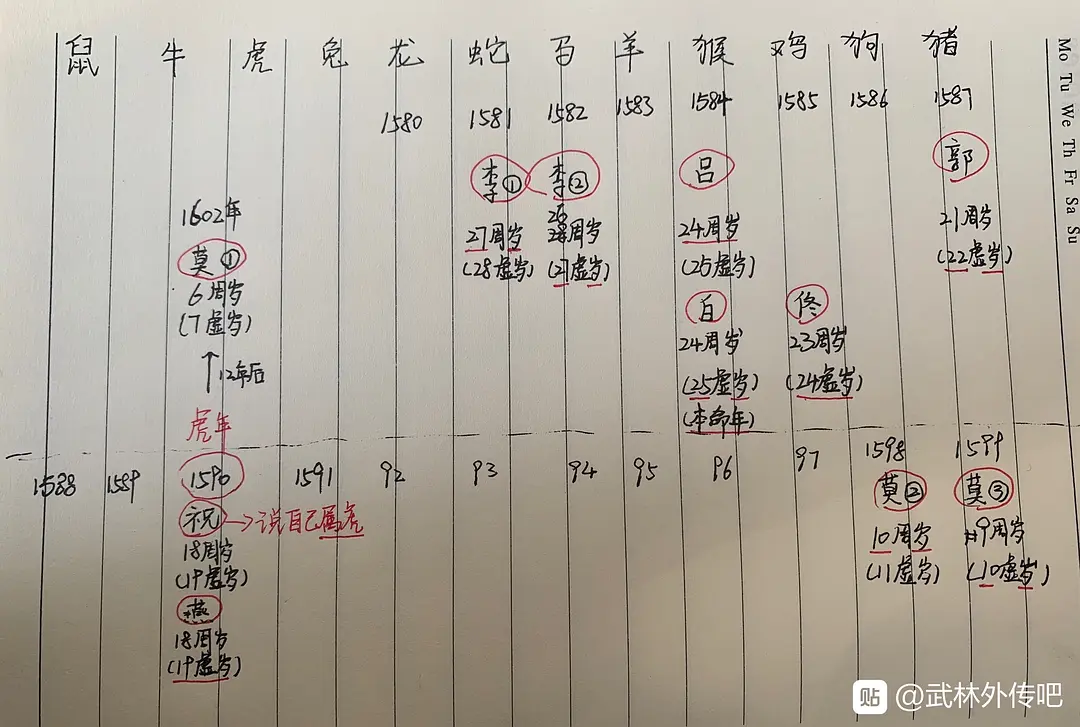 鼠 牛 虎 兔 龙 蛇 马 羊 猴 鸡 狗 猪
1580 1581 1582 1583 1584 1585 1586 1587
李① 李② 吕 郭
27周岁 26周岁 24周岁 21周岁
(28虚岁) (27虚岁) (25虚岁) (22虚岁)
白 佟
24周岁 23周岁
(25虚岁) (24虚岁)
(本命年)
1602年
莫①
6周岁
(7虚岁)
↑12年后
虎年
1588 1589 1590 1591 92 93 94 95 96 97 1598 1599
祝→说自己属虎
18周岁
(19虚岁)
燕
18周岁
(19虚岁)
莫② 莫③
10周岁 9周岁
(11虚岁) (10虚岁)
Mo Tu We Th Fr Sa Su
贴 @武林外传吧